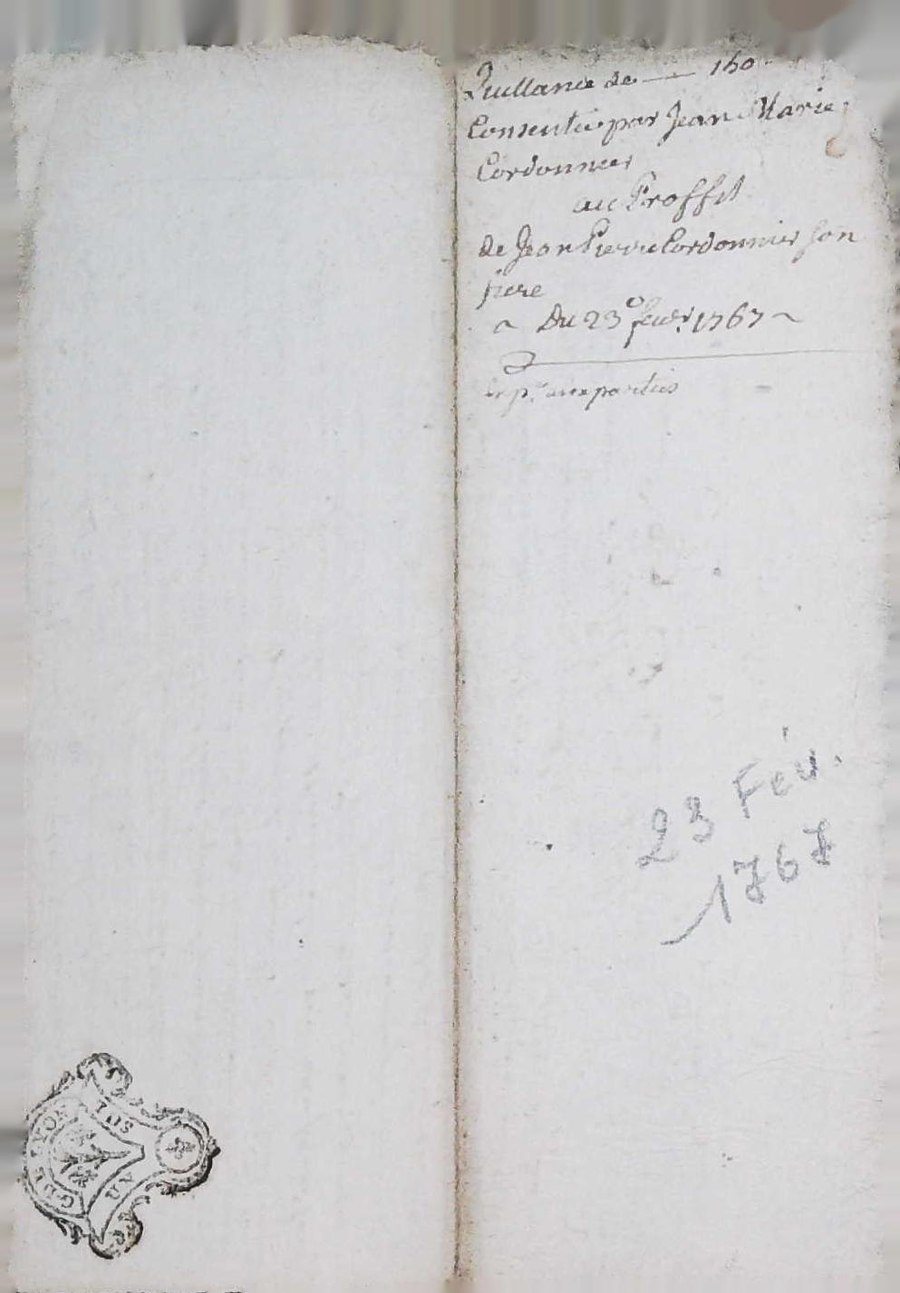 Quittance de — 160
Consentie par Jean Marie
Cordonnier
au Proffit
de Jean Pierre Cordonnier son
frere
Du 23e fevr. 1767
Exp.on aux parties
23 Fév.
1767
G DE LYON